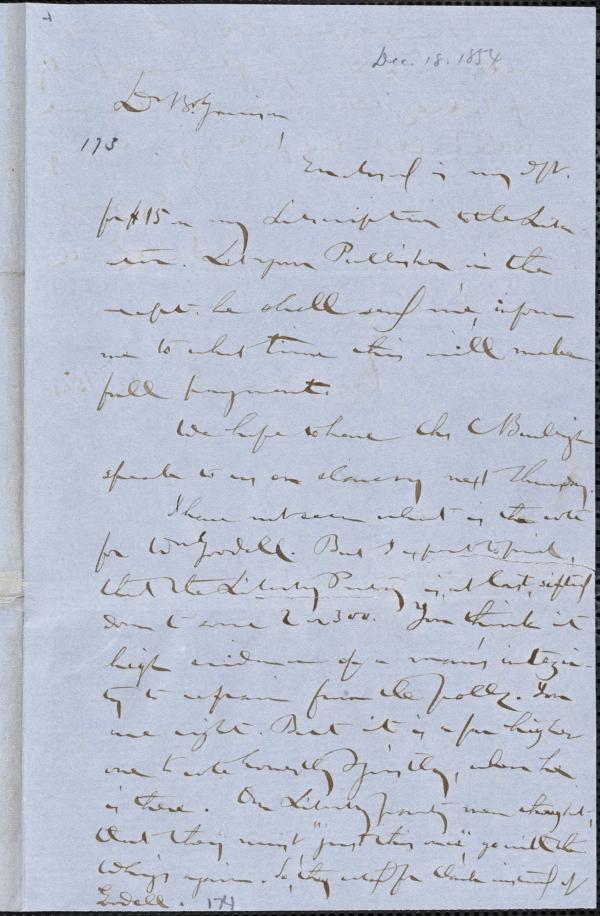 Dec. 18. 1854
Dr Br. Garrison,
173
Enclosed is my dft.
for $15 on my subscription to the Libe-
rator. Let your Publisher in the
recpt. he shall send me, inform
me to what time this will make
full payment.
We hope to have Chs C Burleigh
speak to us on slavery next Thursday.
I have not seen what is the vote
for Wm Goodell. But I expect to find,
that the Liberty Party is, at last, sifted
down to some 2 or 300. You think it
high evidence of a man's integri-
ty to refrain from the polls. You
are right. But it is a far higher
one to vote honestly & justly, when he
is there. Our Liberty party men thought,
that they must "just this once" go with the
Whigs again. So, they voted for Clark instead of
Goodell. 174